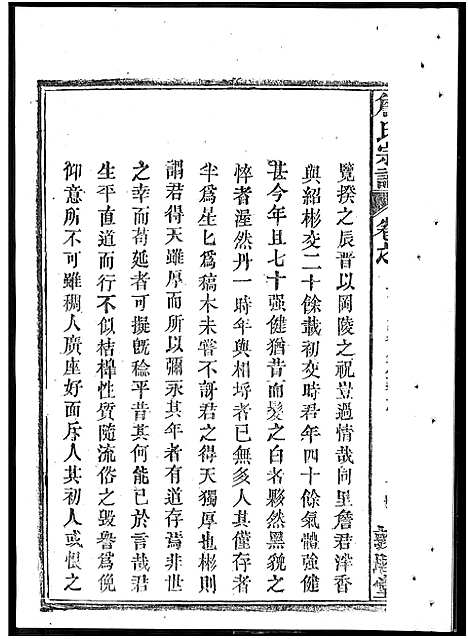 覽揆之辰晋以岡陵之祝豈過情哉同里詹君泮香
與紹彬交二十餘載初交時君年四十餘氣體強健
甚今年且七十强健猶昔而髮之白者夥然黑貌之
悴者渥然丹一時年與相埒者已無多人其僅存者
半爲星匕爲稿木未嘗不訝君之得天獨厚也彬則
謂君得天雖厚而所以彌永其年者有道存焉非世
之幸而苟延者可擬旣稔平昔其何能已於言哉君
生平直道而行不似桔橰性質隨流俗之毀譽爲俛
仰意所不可雖稠人廣座好面斥人其初人或恨之
詹氏宗譜
卷之
堂